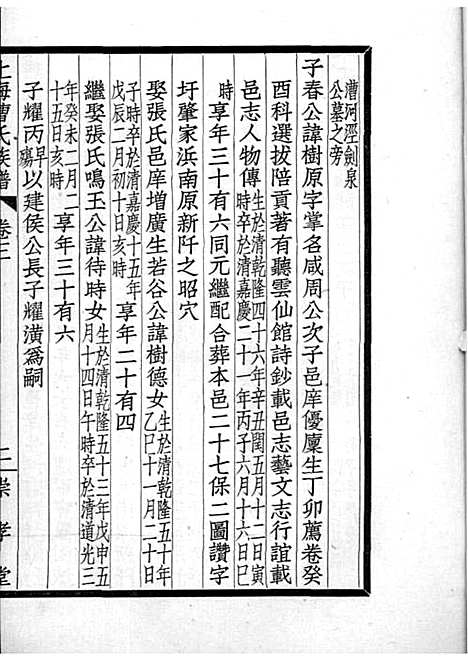 漕河涇劍泉
公墓之旁
子春公諱樹原字掌名咸周公次子邑庠優廩生丁卯薦卷癸
酉科選拔陪貢著有聽雲仙館詩鈔載邑志藝文志行誼載
邑志人物傳生於清乾隆四十六年辛丑閏五月十二日寅
時卒於清嘉慶二十一年丙子六月十六日巳
時享年三十有六同元繼配合葬本邑二十七保二圖讚字
圩肇家浜南原新阡之昭穴
娶張氏邑庠增廣生若谷公諱樹德女生於清乾隆五十年
乙巳十一月二十日
子時卒於清嘉慶十五年
戊辰二月初十日亥時享年二十有四
繼娶張氏鳴玉公諱待時女生於清乾隆五十三年戊申五
月十四日午時卒於清道光三
年癸未二月二
十五日亥時享年三十有六
子耀丙早殤以建侯公長子耀潢為嗣
上海曹氏族譜
卷三
二
崇孝堂